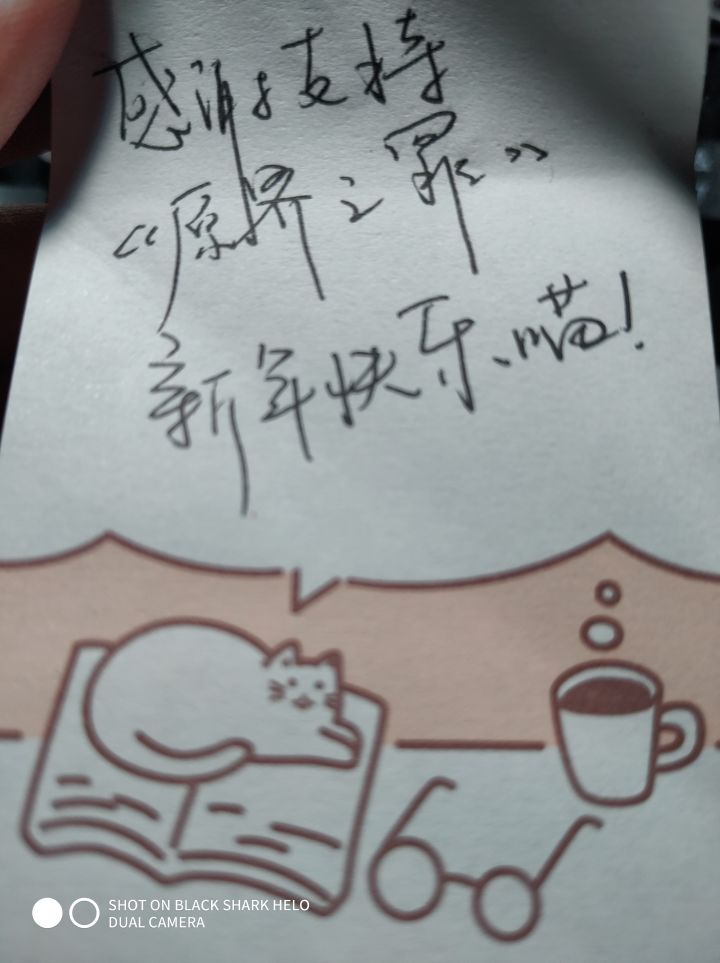 感谢支持
《原界之罪》
新年快乐、喵!
SHOT ON BLACK SHARK HELO
DUAL CAMERA